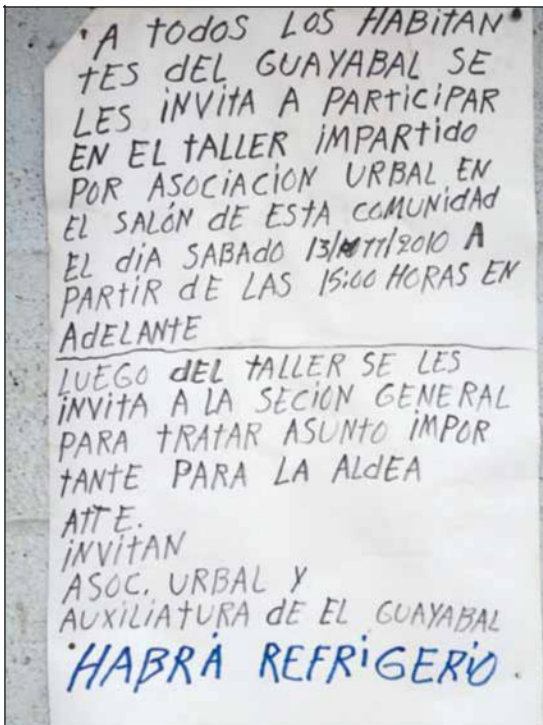 A todos LOS HABitAN
tES dEL GUAYABAL SE
LES iNVitA A PARticiPAR
EN EL tALLER iMPARtido
POR ASOCiACiON URBAL EN
EL SALÓN dE EStA COMUNidAd
EL diA SABAdO 13/11/2010 A
PARtiR dE LAS 15:00 HORAS EN
AdELANtE
LUEGO dEL tALLER SE LES
iNVitA A LA SECiON GENERAL
PARA tRATAR ASUNtO iMPOR
tANtE PARA LA ALdEA
AttE.
iNVitAN
ASOC. URBAL Y
AUXiLiAtURA dE EL GUAYABAL
HABRÁ REFRiGERiO.